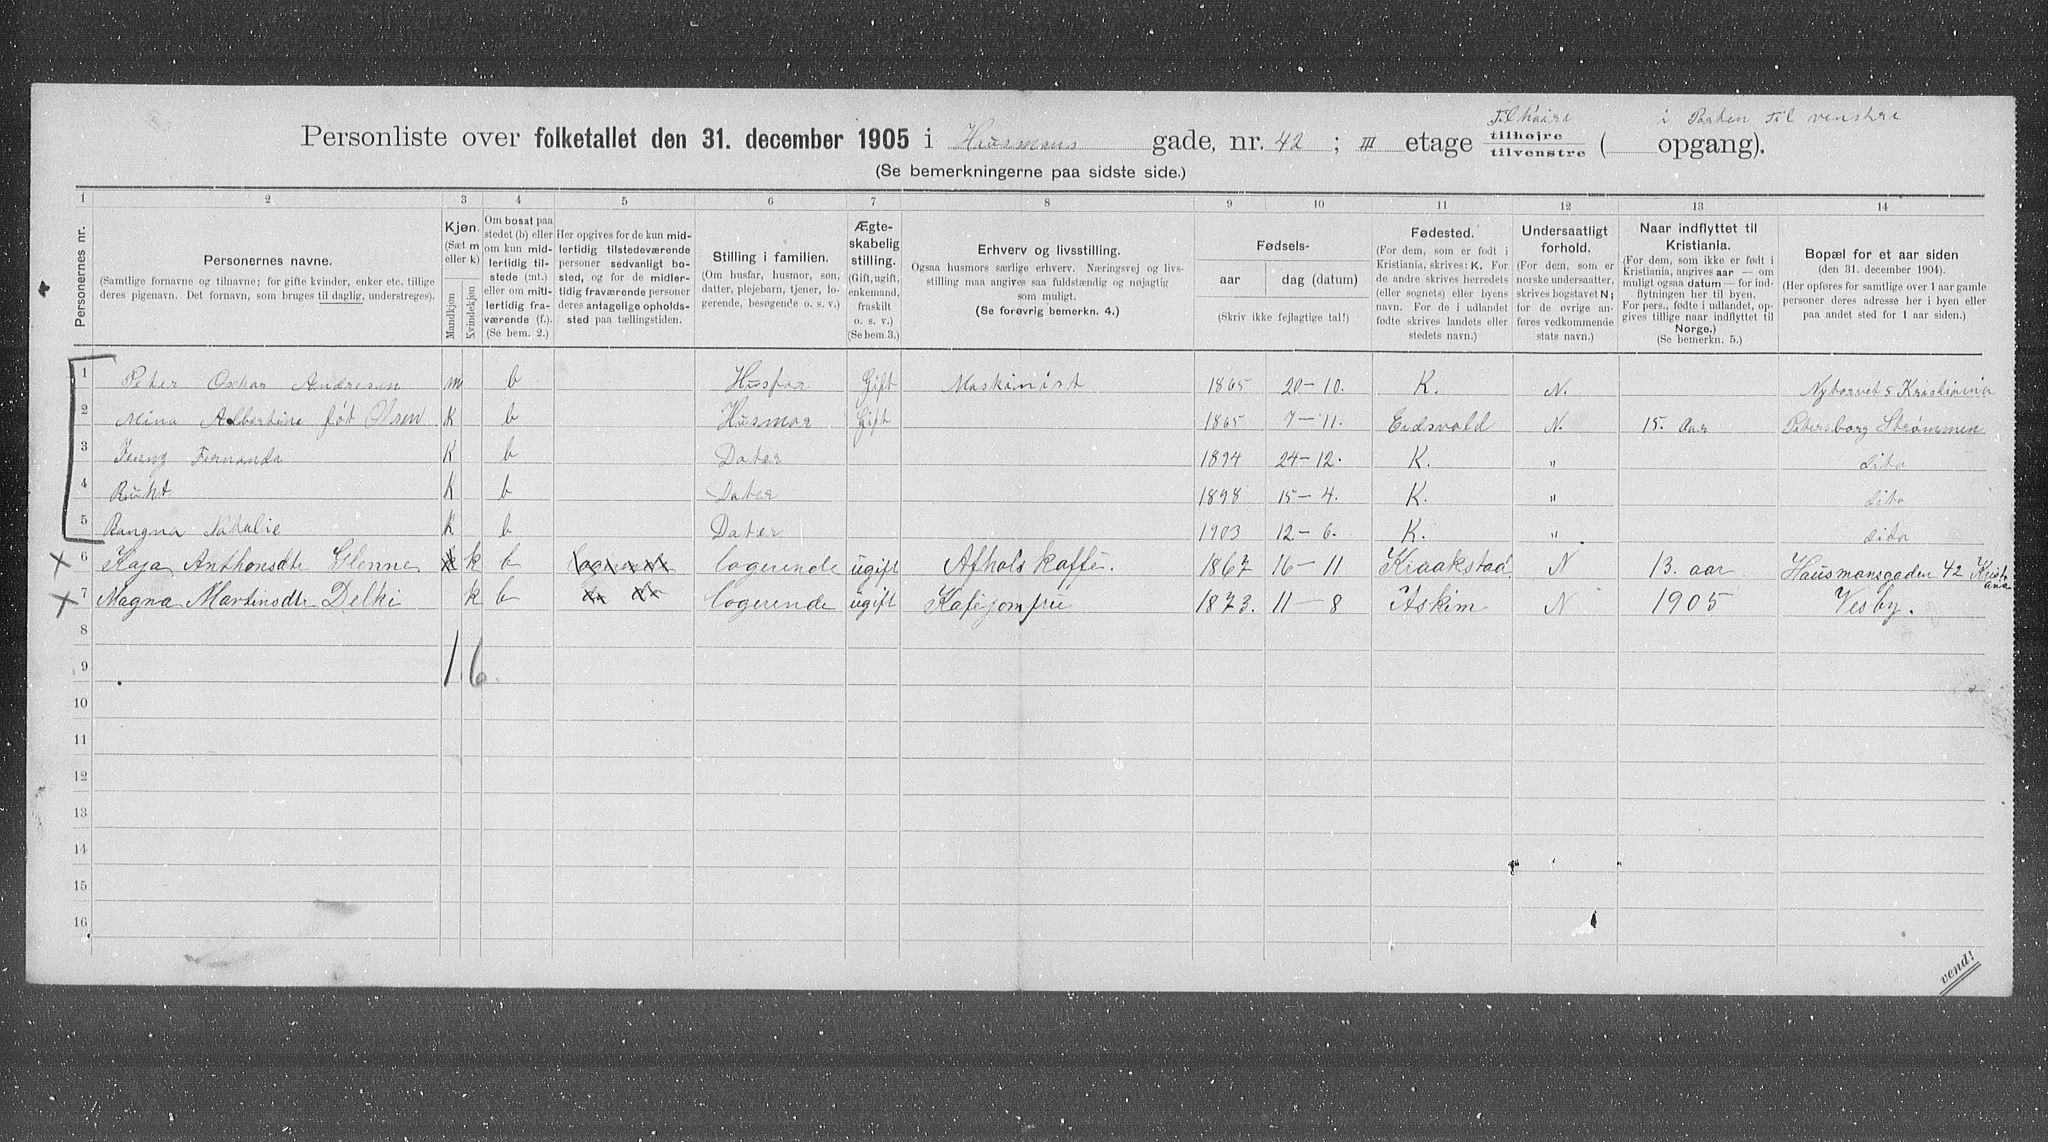 Til høire i Porten til venstre
Personliste over folketallet den 31. december 1905 i Hausmans gade, nr. 42 ; III etage tilhøjre tilvenstre ( opgang).
(Se bemerkningerne paa sidste side.)
1 2 3 4 5 6 7 8 9 10 11 12 13 14
Personernes nr.
Personernes navne.
(Samtlige fornavne og tilnavne; for gifte kvinder, enker etc. tillige
deres pigenavn. Det fornavn, som bruges til daglig, understreges).
Kjøn.
(Sæt m
eller k)
Mandkjøn
Kvindekjøn
Om bosat paa
stedet (b) eller
om kun mid-
lertidig til-
stede (mt.)
eller om mid-
lertidig fra-
værende (f.).
(Se bem. 2.)
Her opgives for de kun mid-
lertidig tilstedeværende
personer sedvanligt bo-
sted, og for de midler-
tidig fraværende personer
deres antagelige opholds-
sted paa tællingstiden.
Stilling i familien.
(Om husfar, husmor, søn,
datter, plejebarn, tjener, lo-
gerende, besøgende o. s. v.)
Ægte-
skabelig
stilling.
(Gift, ugift,
enkemand,
fraskilt
o. s. v.)
(Se bem. 3.)
Erhverv og livsstilling.
Ogsaa husmors særlige erhverv. Næringsvej og livs-
stilling maa angives saa fuldstændig og nøjagtig
som muligt.
(Se forøvrig bemerkn. 4.)
Fødsels-
aar dag (datum)
(Skriv ikke fejlagtige tal!)
Fødested.
(For dem, som er født i
Kristiania, skrives: K. For
de andre skrives herredets
(eller sognets) eller byens
navn. For de i udlandet
fødte skrives landets eller
stedets navn.)
Undersaatligt
forhold.
(For dem, som er
norske undersaatter,
skrives bogstavet N;
for de øvrige an-
føres vedkommende
stats navn.)
Naar indflyttet til
Kristiania.
(For dem, som ikke er født i
Kristiania, angives aar — om
muligt ogsaa datum — for ind-
flytningen her til byen.
For pers., fødte i udlandet, op-
gives tillige naar indflyttet til
Norge.)
(Se bemerkn. 5.)
Bopæl for et aar siden
(den 31. december 1904).
(Her opføres for samtlige over 1 aar gamle
personer deres adresse her i byen eller
paa andet sted for 1 aar siden.)
1 Peter Oskar Andresen m b Husfar Gift Maskinist 1865 20–10. K. N. Nytorvet 5 Kristiania
2 Mina Albertine føt Olsen K b Husmor Gift 1865 7–11. Eidsvold N. 15. aar Petersborg Strømmen
3 Jenny Fernanda K b Dater 1894 24–12. K. " dito
4 Ruht K b Dater 1898 15–4. K. " dito
5 Rangna Natalie K b Dater 1903 12–6. K. " dito
6 Kaja Anthonsdtr Glenne k b logerende logerende ugift Afholskaffe. 1867 16–11 Kraakstad N 13. aar Hausmansgaden 42 Kristiana
7 Magna Martinsdtr Delki k b logerende ugift Kafejomfru 1873. 11–8 Askim N 1905 Vesby.
8
9 1 6
10
11
12
13
14
15
16
vend!